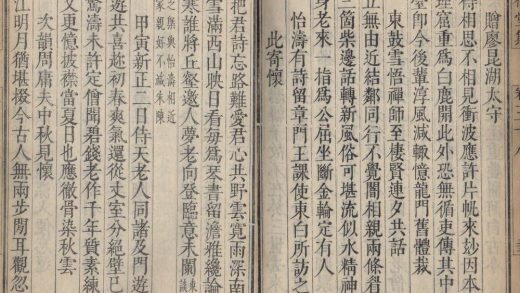 贈廖昆湖太守
得相思不相見衝波應許片帆來妙因本
理窟重爲白鹿開此外恐無循吏傳其中
堂卽今後輩淳風減輙憶龍門舊體裁
東鼓雪悟禪師至棲賢連夕共話
立無由近結鄰同行不覺閣相親兩條得
三箇柴邊話轉新風俗可堪流似水精神
身老來一指爲公屈坐斷金輪定有人
怡濤有詩留章門王課使東白所訪之
此寄懷
把君詩忘路難愛君心共野雲寬雨深南
雪滿西山映日看每爲琴書留澹雅纔論
寒誰將丘壑邀人夢老向登臨意未闌
之與怡濤相近
家親好不減朱陳
甲寅新正二日侍天老人同諸及門遊
遊共喜趂初春爽氣還從丈室分絕壁已
驚濤未許定僧聞碧錢老作千年質素練
又更憶披襟當夏日也應徹骨染秋雲
次韻周庸夫中秋見懷
江明月猶堪掇今古人無兩步閒耳觀忽